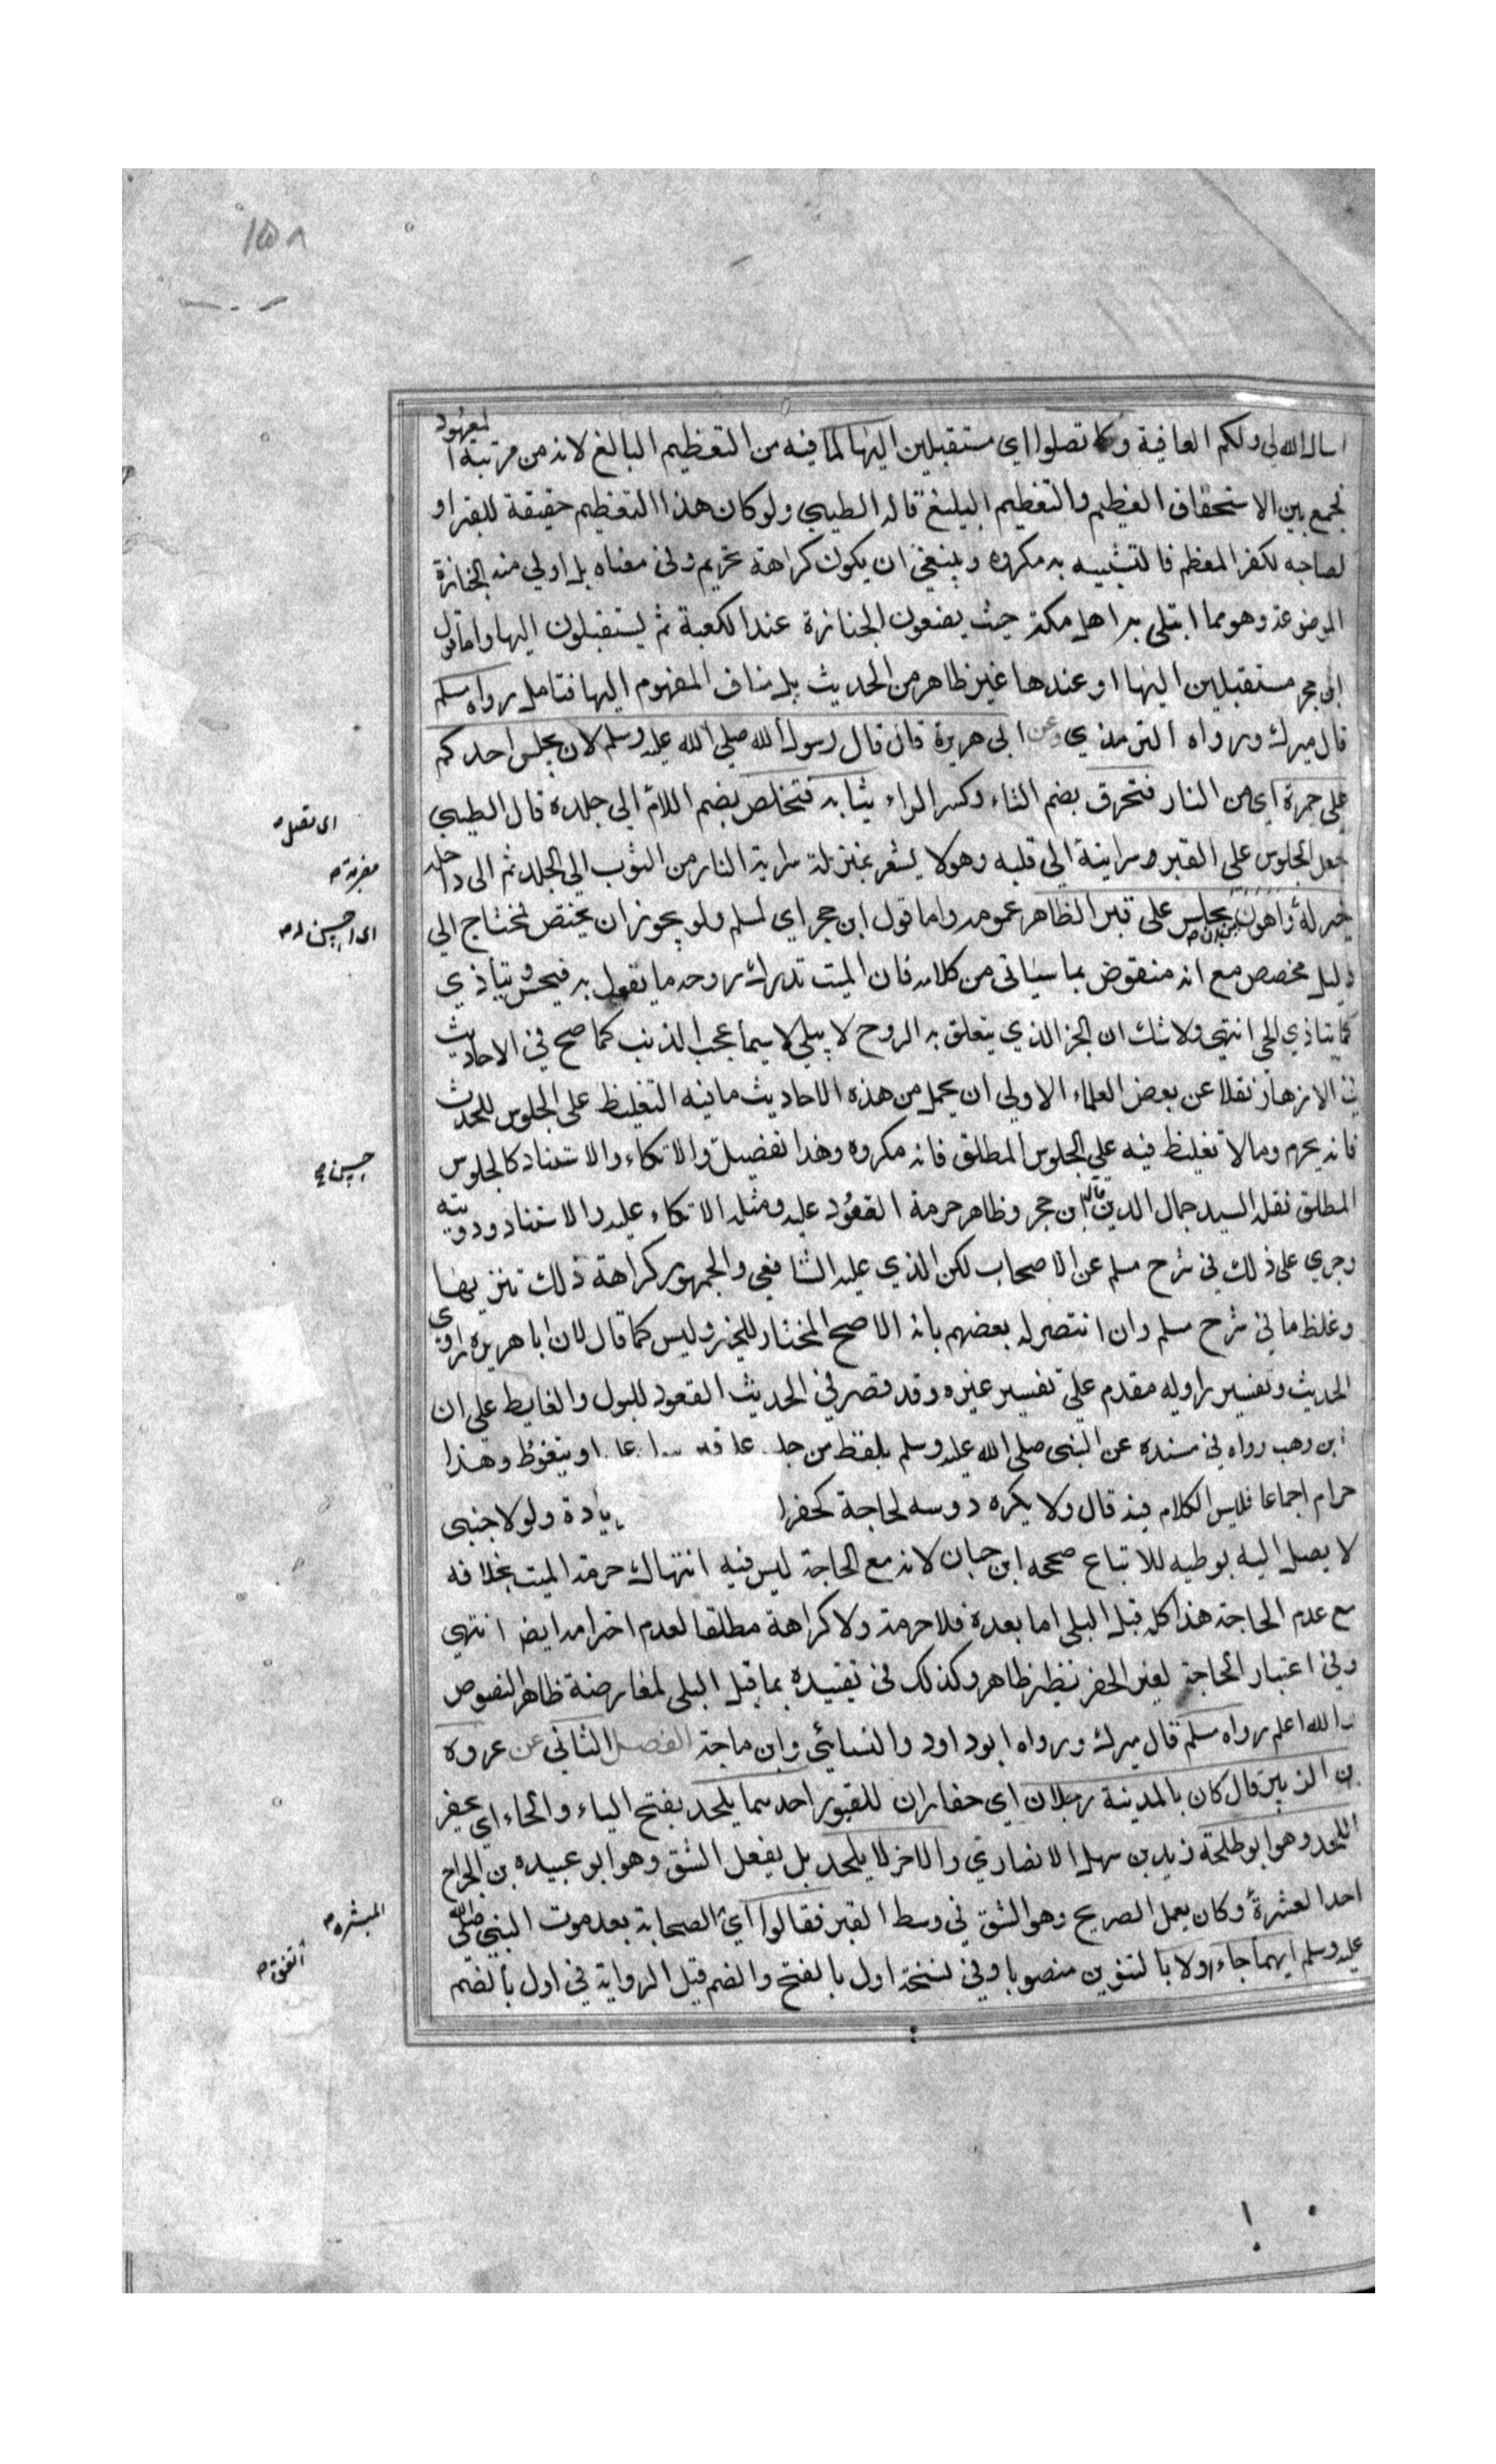 ١٥٨
اسال الله لي ولكم العافية ولا تصلوا اي مستقبلين اليها لما فيه من التعظيم البالغ لانه من مرتبة المعبود
فجمع بين الاستحقاق العظيم والتعظيم البليغ قاله الطيبي ولو كان هذا التعظيم حقيقة للقبر او
لصاحبه لكفر المعظم فالتشبيه به مكروه وينبغي ان يكون كراهة تحريم وفي معناه بل اولى منه الجنازة
الموضوعة وهو مما ابتلي به اهل مكة حيث يضعون الجنازة عند الكعبة ثم يستقبلون اليها واما قول
ابن حجر مستقبلين اليها او عندها غير ظاهر من الحديث بل مناف المفهوم اليها فتامل رواه مسلم
قال ميرك ورواه الترمذي وعن ابي هريرة قال قال رسول الله صلي الله عليه وسلم لان يجلس احدكم
على جمرة اي من النار فتحرق بضم التاء وكسر الراء ثيابه فتخلص بضم اللام الي جلده قال الطيبي
اى تصل
جعل الجلوس على القبر وسراية الي قلبه وهو لا يشعر بمنزلة سراية النار من الثوب الى الجلد ثم الى داخله
مضرته
خير له واهون من ان يجلس على قبر الظاهر عمومه واما قول ابن حجر اي لمسلم ولو يجوز ان يختص فيحتاج الي
اى احسن له
دليل مخصص مع انه منقوض بما سياتى من كلامه فان الميت تدرك روحه ما يفعل به فيحس ويتاذي
كما يتاذي الحي انتهى ولا شك ان الجز الذي يتعلق به الروح لا يبلي لا سيما عجب الذنب كما صح في الاحاديث
في الازهار نقلا عن بعض العلماء الاولى ان يحمل من هذه الاحاديث ما فيه التغليظ على الجلوس للحدث
فانه يحرم وما لا تغليظ فيه علي الجلوس المطلق فانه مكروه وهذا تفصيل والاتكاء والاستناد كالجلوس
حسن
المطلق نقله السيد جمال الدين قال ابن حجر وظاهر حرمة القعود عليه ومثله الاتكاء عليه والاستناد ودوسه
وجري على ذلك في شرح مسلم عن الاصحاب لكن الذي عليه الشافعي والجمهور كراهة ذلك تنزيها
وغلظ ما في شرح مسلم وان انتصر له بعضهم بانه الاصح المختار للخبر وليس كما قال لان ابا هريرة راوي
الحديث وتفسير راويه مقدم علي تفسير غيره وقد فسر في الحديث القعود للبول والغايط على ان
ابن وهب رواه في مسنده عن النبى صلى الله عليه وسلم بلفظ من جلس على قبر او يتغوط وهذا
حرام اجماعا فليس الكلام فيه قال ولا يكره دوسه لحاجة كحفر يادة ولو لاجنبى
لا يصل اليه بوطيه للاتباع صححه ابن حبان لانه مع الحاجة ليس فيه انتهاك حرمة الميت بخلافه
مع عدم الحاجة هذا كله قبل البلى اما بعده فلا حرمة ولا كراهة مطلقا لعدم احترامه ايضا انتهى
وفي اعتبار الحاجة لغير الحفر نظر ظاهر وكذلك فى تقييده بما قبل البلى لمعارضة ظاهر النصوص
والله اعلم رواه مسلم قال ميرك ورواه ابوداود والنسائي وابن ماجة الفصل الثانى عن عروة
بن الزبير قال كان بالمدينة رجلان اي حفاران للقبور احدهما يلحد بفتح الياء والحاء اي يحفر
اللحد وهو ابو طلحة زيد بن سهل الانصاري والاخر لا يلحد بل يفعل الشق وهو ابو عبيده بن الجراح
احد العشرة وكان يعمل الصريح وهو الشق في وسط القبر فقالوا اي الصحابة بعد موت النبي صلى الله
المبشره
عليه وسلم ايهما جاء اولا بالتنوين منصوبا وفي نسخة اول بالفتح والضم قيل الرواية في اول بالضم
اتفق